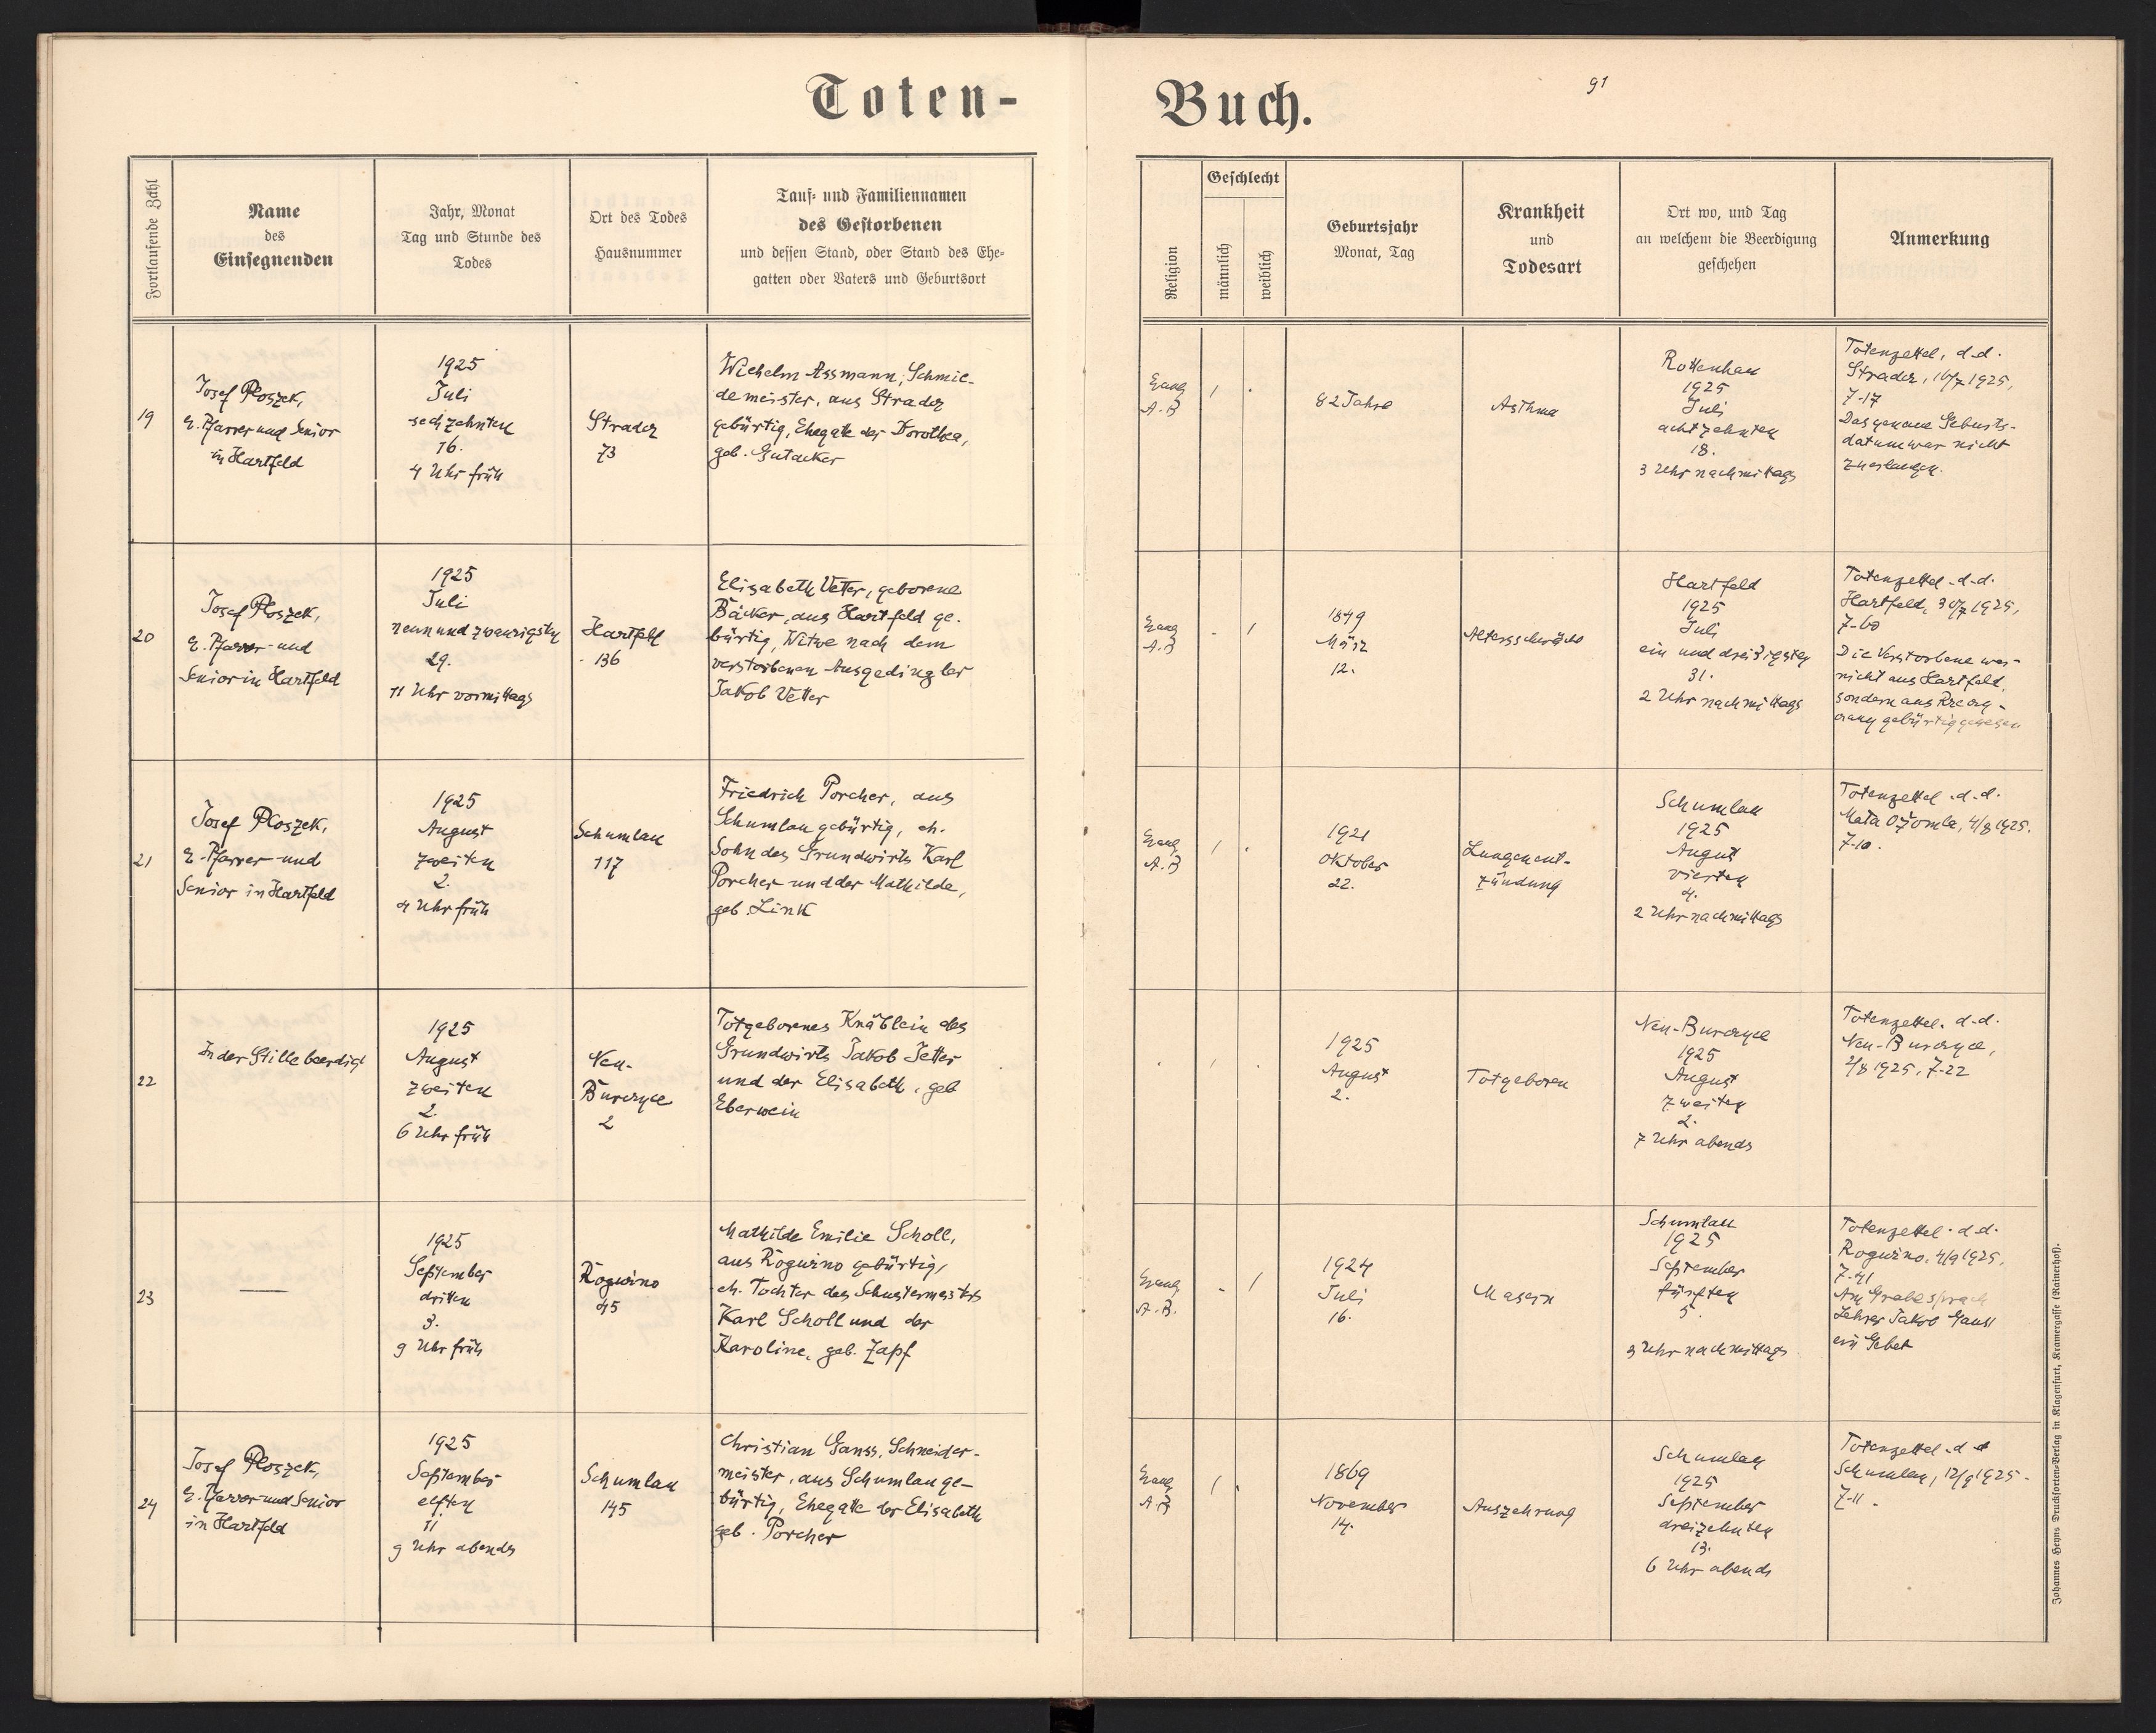 Toten-
Buch.
91
Fortlaufende Zahl
Name
des
Einsegnenden
Jahr, Monat
Tag und Stunde des
Todes
Ort des Todes
Hausnummer
Tauf- und Familiennamen
des Gestorbenen
und dessen Stand, oder Stand des Ehe-
gatten oder Vaters und Geburtsort
Religion
Geschlecht
männlich
weiblich
Geburtsjahr
Monat, Tag
Krankheit
und
Todesart
Ort wo, und Tag
an welchem die Beerdigung
geschehen
Anmerkung
19
Josef Ploszek,
E. Pfarrer und Senior
in Hartfeld
1925
Juli
sechzehnten
16.
4 Uhr früh
Stradcz
73
Wilhelm Assmann, Schmie-
demeister, aus Stradcz
gebürtig, Ehegatte der Dorothea,
geb. Gutacker
Evang
A.B
/
82 Jahre
Asthma
Rottenhan
1925
Juli
achtzehnten
18.
3 Uhr nachmittags
Totenzettel, d.d.
Stradcz, 16/7 1925,
Z-17
Das genaue Geburts-
datum war nicht
zu erlangen.
20
Josef Ploszek,
E. Pfarrer und
Senior in Hartfeld
1925
Juli
neunundzwanzigsten
29.
11 Uhr vormittags
Hartfeld
136
Elisabeth Vetter, geborene
Bäcker, aus Hartfeld ge-
bürtig, Witwe nach dem
verstorbenen Ausgedingler
Jakob Vetter
Evang
A.B
/
1849
März
12.
Altersschwäche
Hartfeld
1925
Juli
ein und dreißigsten
31.
2 Uhr nachmittags
Totenzettel d.d.
Hartfeld, 30/7 1925,
Z-60
Die Verstorbene war
nicht aus Hartfeld,
sondern aus
gebürtig gewesen
21
Josef Ploszek,
E. Pfarrer und
Senior in Hartfeld
1925
August
zweiten
2.
4 Uhr früh
Schumlau
117
Friedrich Porcher, aus
Schumlau gebürtig, eh.
Sohn des Grundwirts Karl
Porcher und der Mathilde,
geb. Link
Evang
A.B
/
1921
Oktober
22.
Lungenent-
zündung
Schumlau
1925
August
vierten
4.
2 Uhr nachmittags
Totenzettel d.d.
Mała Ożomla, 4/8 1925.
Z-10.
22
In der Stille beerdigt
1925
August
zweiten
2.
6 Uhr früh
Neu-
Burczyce
2
Totgebornes Knäblein des
Grundwirts Jakob Jetter
und der Elisabeth, geb
Eberwein
/
1925
August
2.
Totgeboren
Neu-Burczyce
1925
August
zweiten
2.
7 Uhr abends
Totenzettel. d.d.
Neu-Burczyce,
2/8 1925, Z-22
23
—
1925
September
dritten
3.
9 Uhr früh
Roguźno
45
Mathilde Emilie Scholl,
aus Roguźno gebürtig,
eh. Tochter des Schustermeisters
Karl Scholl und der
Karoline, geb. Zapf
Evang
A.B.
/
1924
Juli
16.
Masern
Schumlau
1925
September
fünften
5
3 Uhr nachmittags
Totenzettel d.d.
Roguźno, 4/9 1925,
Z-41
Am Grabe sprach
Lehrer Jakob Gauss
ein Gebet
24
Josef Ploszek,
E. Pfarrer und Senior
in Hartfeld
1925
September
elften
11.
9 Uhr abends
Schumlau
145
Christian Ganss, Schneider-
meister, aus Schumlau ge-
bürtig, Ehegatte der Elisabeth
geb. Porcher
Evang
A.B
/
1869
November
14.
Auszehrung
Schumlau
1925
September
dreizehnten
13.
6 Uhr abends
Totenzettel d.d
Schumlau, 12/9 1925-
Z-11.
Johannes Heyns Drucksorten-Verlag in Klagenfurt, Kramergasse (Rainerhof).